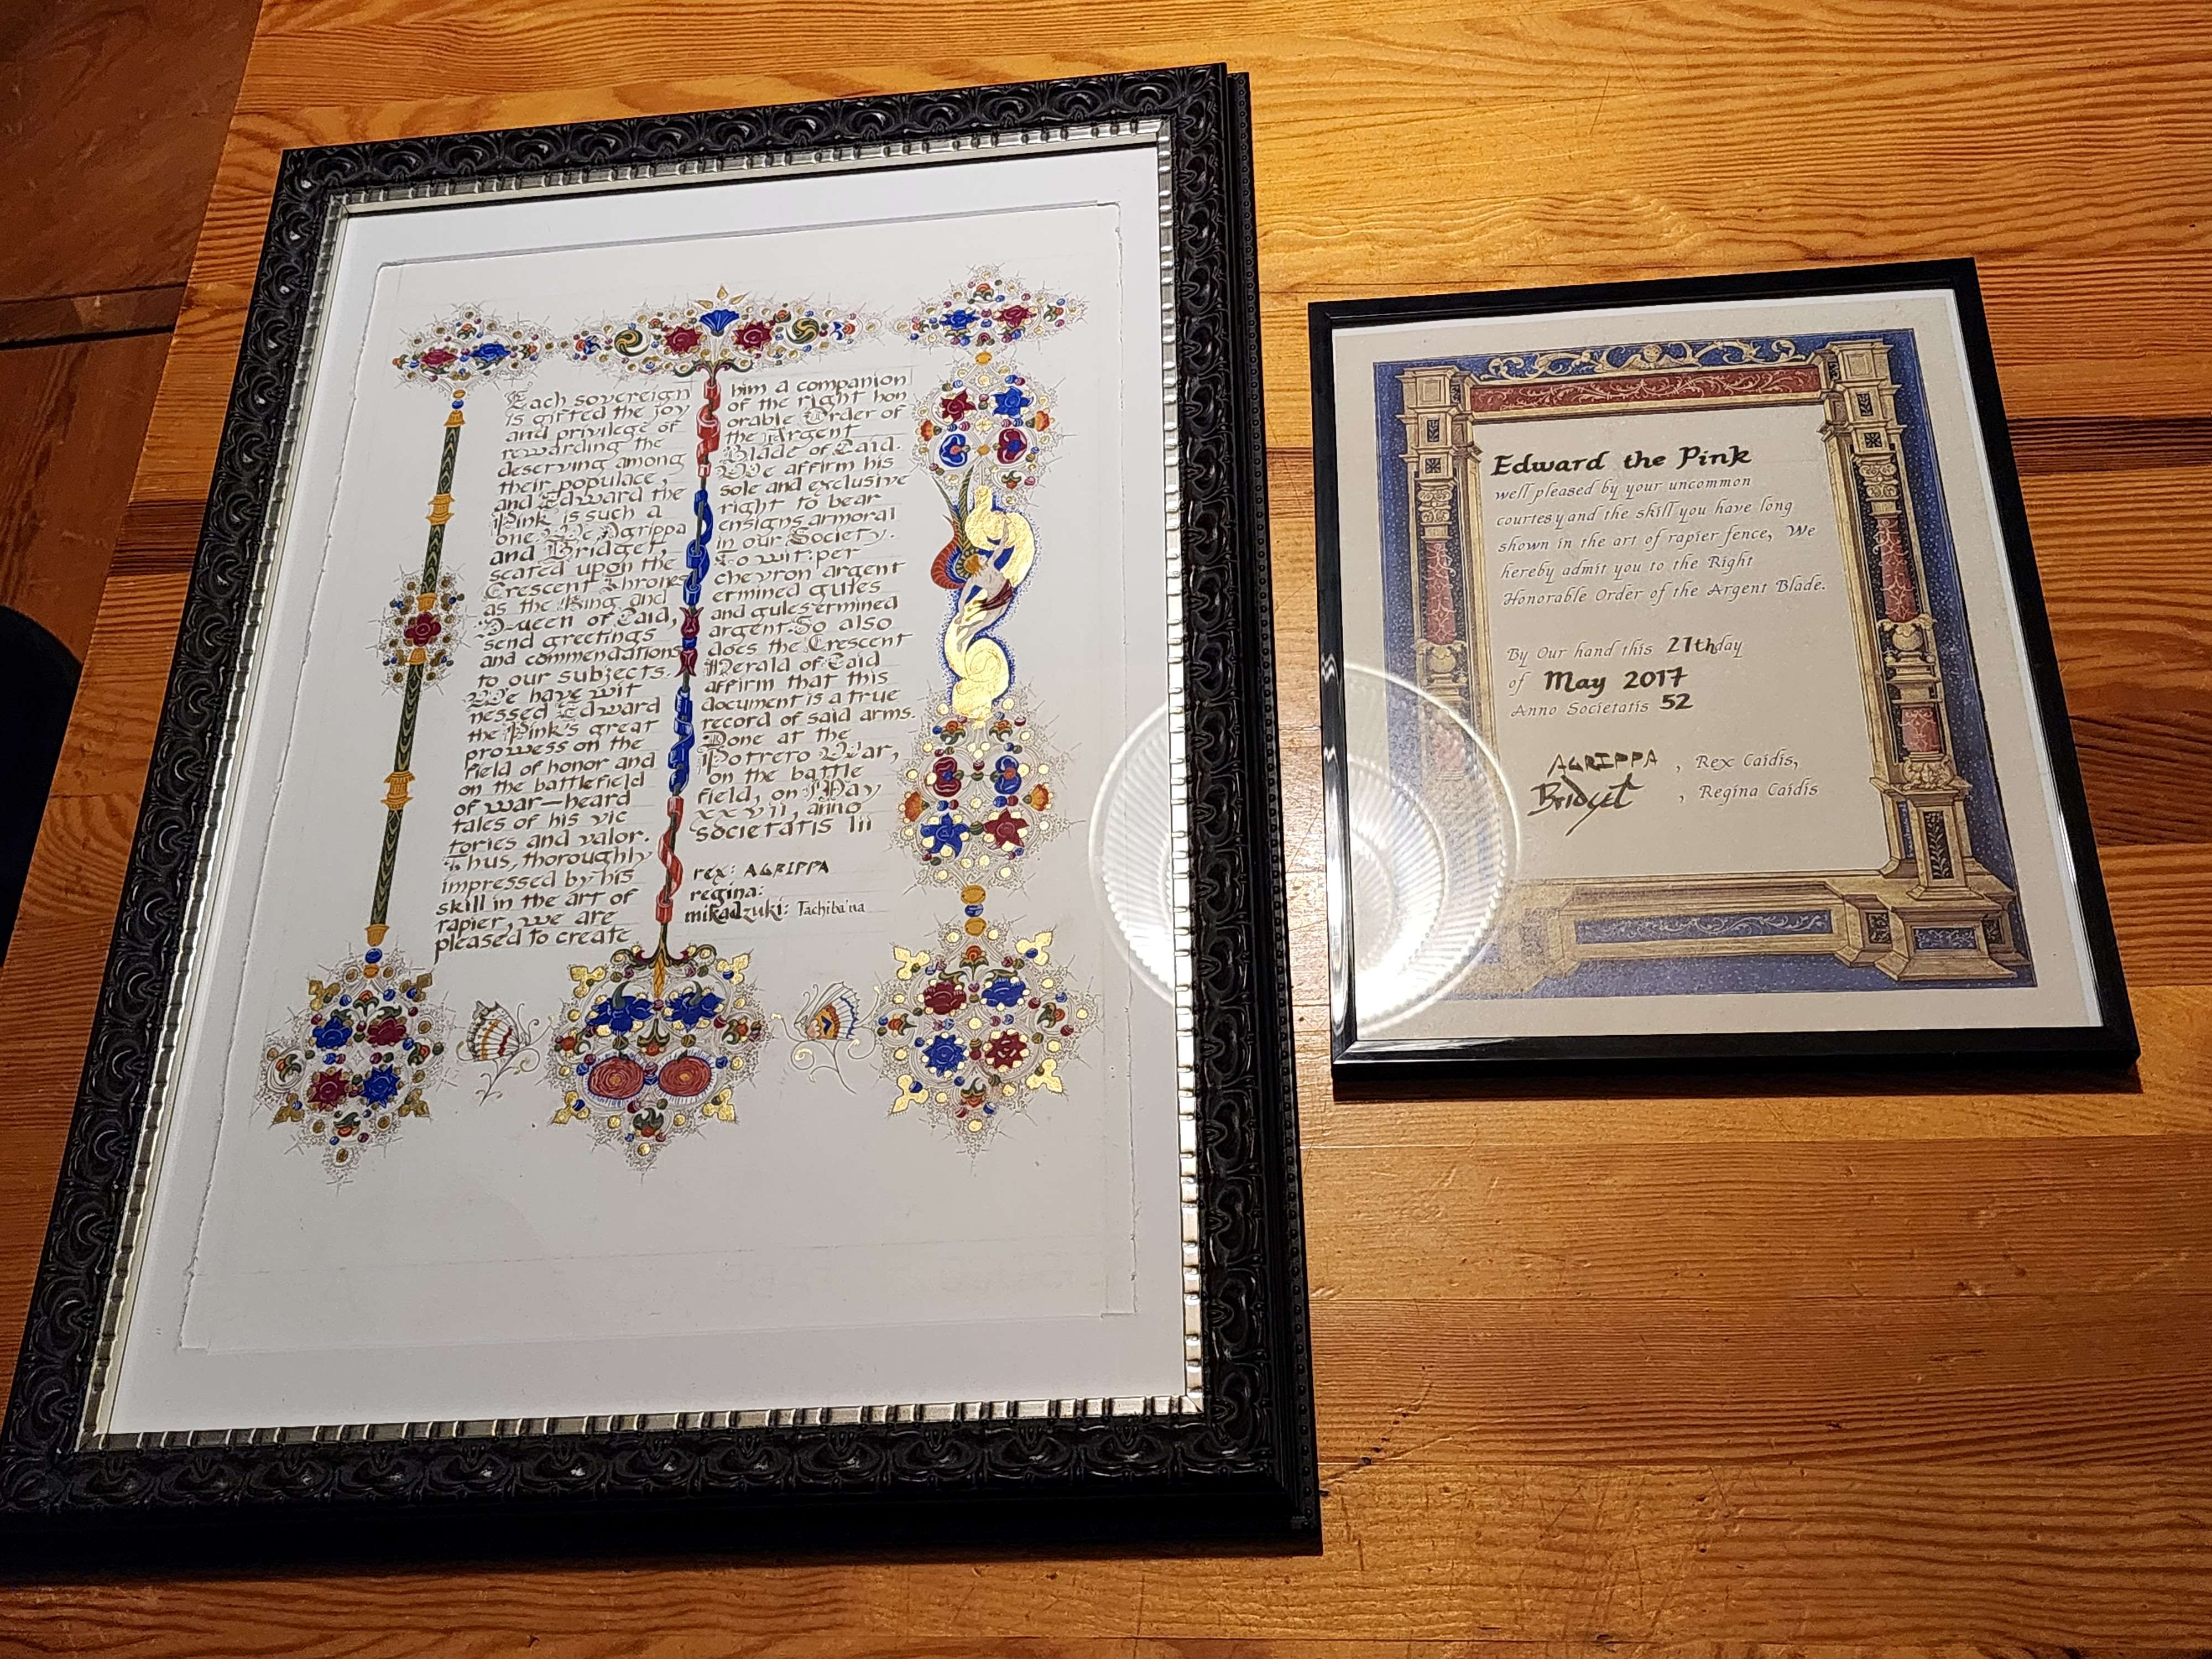 Each sovereign
is gifted the joy
and privilege of
rewarding the
deserving among
their populace,
and Edward the
Pink is such a
one. We Agrippa
and Bridget,
seated upon the
Crescent Thrones
as the King and
Queen of Caid,
send greetings
and commendations
to our subjects.
We have wit
nessed Edward
the Pink's great
prowess on the
field of honor and
on the battlefield
of war—heard
tales of his vic
tories and valor.
Thus, thoroughly
impressed by his
skill in the art of
rapier, we are
pleased to create
him a companion
of the right hon
orable Order of
the Argent
Blade of Caid.
We affirm his
sole and exclusive
right to bear
ensigns armoral
in our Society.
To wit: per
chevron argent
ermined gules
and gules ermined
argent. So also
does the Crescent
Herald of Caid
affirm that this
document is a true
record of said arms.
Done at the
Potrero War,
on the battle
field, on May
xxvii, anno
societatis lii
rex: AGRIPPA
regina:
mikadzuki: Tachibana
Edward the Pink
well pleased by your uncommon
courtesy and the skill you have long
shown in the art of rapier fence, We
hereby admit you to the Right
Honorable Order of the Argent Blade.
By Our hand this 27th day
of May 2017
Anno Societatis 52
AGRIPPA, Rex Caidis,
Bridget, Regina Caidis